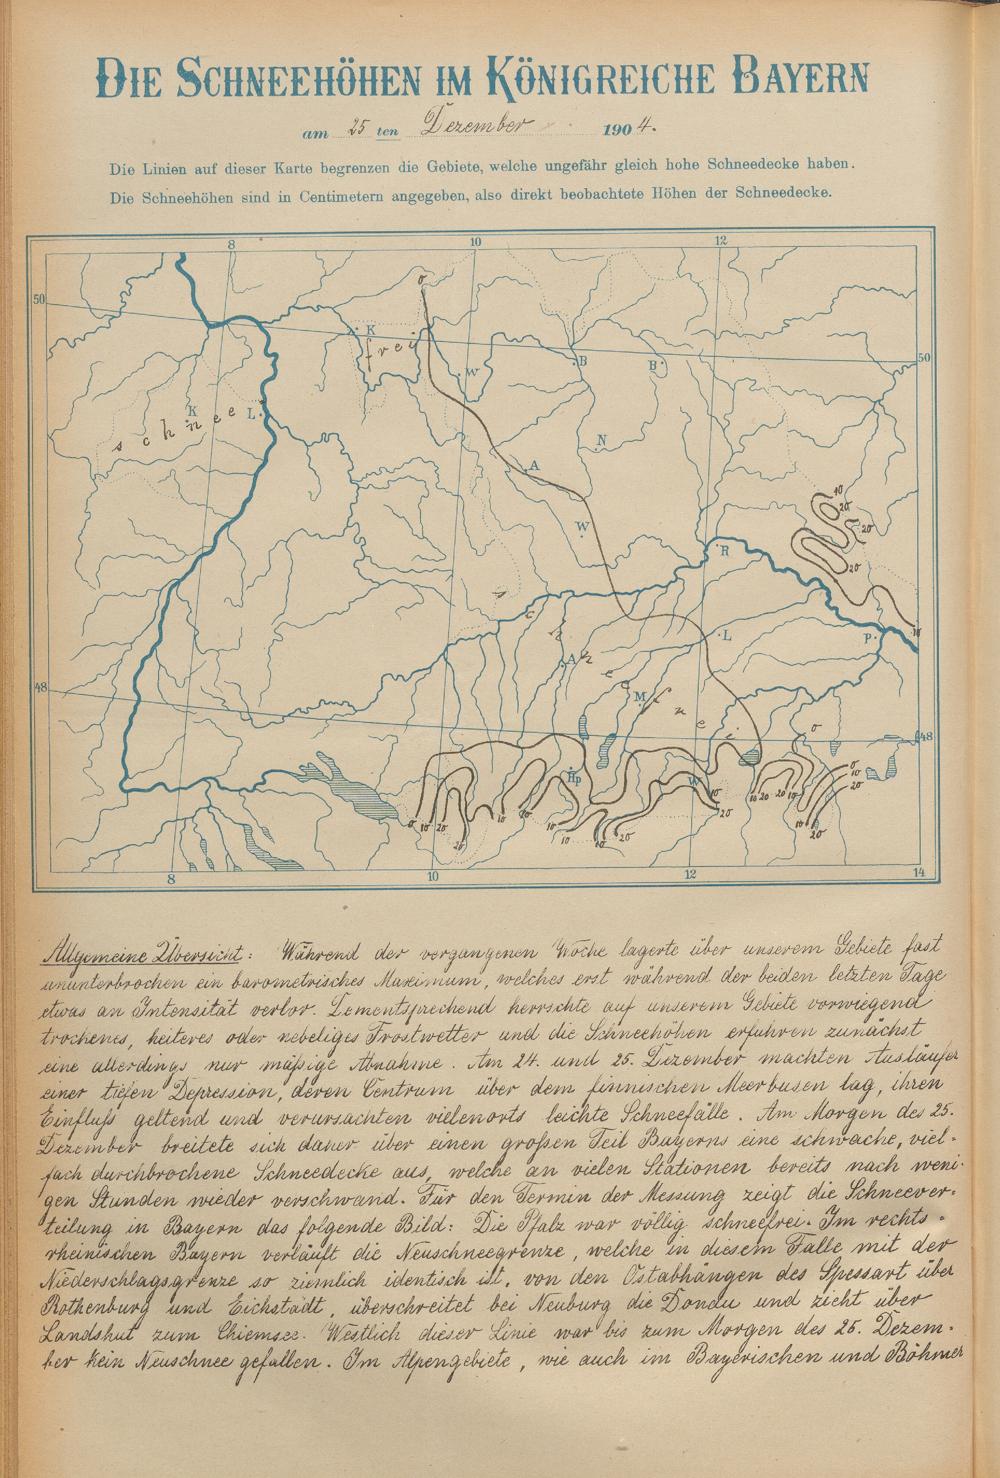 DIE SCHNEEHÖHEN IM KÖNIGREICHE BAYERN
am 25 ten Dezember 1904.
Die Linien auf dieser Karte begrenzen die Gebiete, welche ungefähr gleich hohe Schneedecke haben.
Die Schneehöhen sind in Centimetern angegeben, also direkt beobachtete Höhen der Schneedecke.
8 10 12
50
0
K
frei
50
W B B
K L
schnee
N
A
10
20
W 20
R
20
L P
A
48
M
schneefrei
0
48
Hp W
0 10 20 20 10 20 10 10 10 20 10 20 10 20 20 10 0 10 20 10 20
8 10 12 14
Allgemeine Übersicht: Während der vergangenen Woche lagerte über unserem Gebiete fast
ununterbrochen ein barometrisches Maximum, welches erst während der beiden letzten Tage
etwas an Intensität verlor. Dementsprechend herrschte auf unserem Gebiete vorwiegend
trockenes, heiteres oder nebeliges Frostwetter und die Schneehöhen erfuhren zunächst
eine allerdings nur mäßige Abnahme. Am 24. und 25. Dezember machten Ausläufer
einer tiefen Depression, deren Centrum über dem finnischen Meerbusen lag, ihren
Einfluß geltend und verursachten vielenorts leichte Schneefälle. Am Morgen des 25.
Dezember breitete sich daher über einen großen Teil Bayerns eine schwache, viel-
fach durchbrochene Schneedecke aus, welche an vielen Stationen bereits nach weni-
gen Stunden wieder verschwand. Für den Termin der Messung zeigt die Schneever-
teilung in Bayern das folgende Bild: Die Pfalz war völlig schneefrei. Im rechts-
rheinischen Bayern verläuft die Neuschneegrenze, welche in diesem Falle mit der
Niederschlagsgrenze so ziemlich identisch ist, von den Ostabhängen des Spessart über
Rothenburg und Eichstädt, überschreitet bei Neuburg die Donau und zieht über
Landshut zum Chiemsee. Westlich dieser Linie war bis zum Morgen des 25. Dezem-
ber kein Neuschnee gefallen. Im Alpengebiete, wie auch im Bayerischen und Böhmer